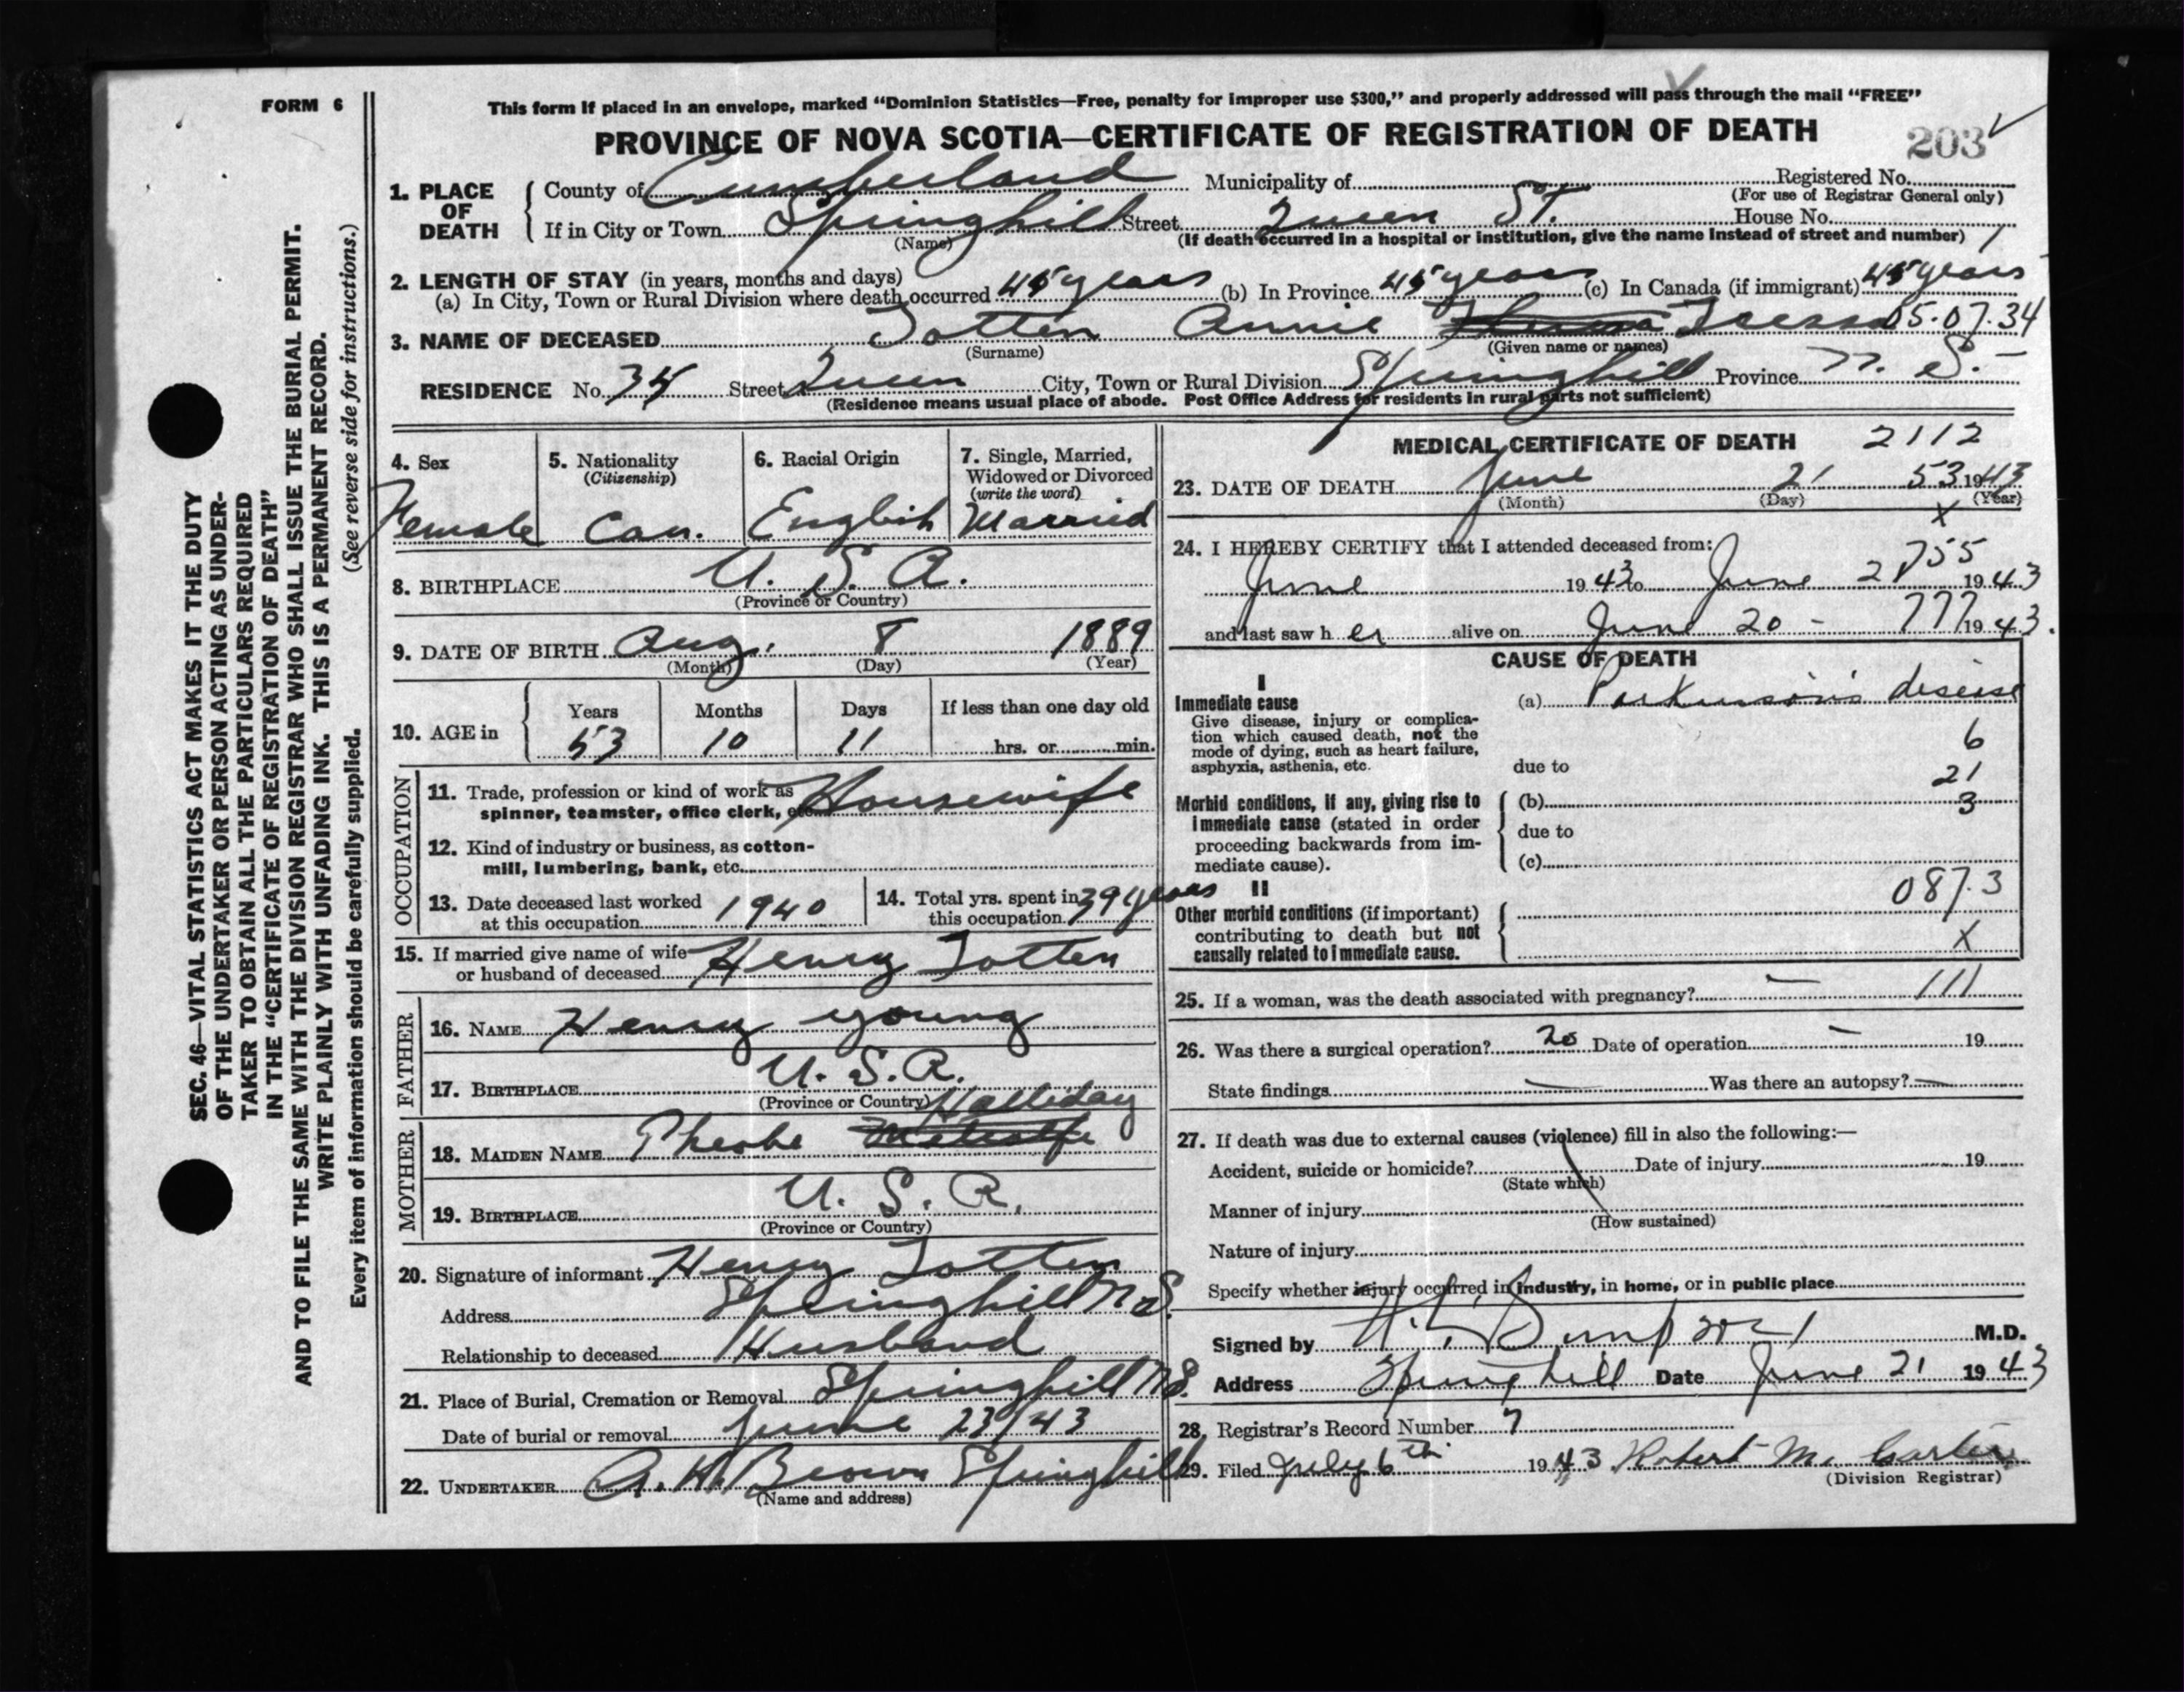 FORM 6
This form if placed in an envelope, marked “Dominion Statistics—Free, penalty for improper use $300,” and properly addressed will pass through the mail “FREE”
PROVINCE OF NOVA SCOTIA—CERTIFICATE OF REGISTRATION OF DEATH
203
1. PLACE OF DEATH
County of Cumberland Municipality of Registered No.
(For use of Registrar General only)
If in City or Town Springhill Street Queen St. House No.
(Name) (If death occurred in a hospital or institution, give the name instead of street and number)
2. LENGTH OF STAY (in years, months and days)
(a) In City, Town or Rural Division where death occurred 45 years (b) In Province 45 years (c) In Canada (if immigrant) 45 years
3. NAME OF DECEASED Totten Annie 05-07-34
(Surname) (Given name or names)
RESIDENCE No. 35 Street Queen City, Town or Rural Division Springhill Province N. S.
(Residence means usual place of abode. Post Office Address for residents in rural parts not sufficient)
4. Sex
Female
5. Nationality
(Citizenship)
Can.
6. Racial Origin
English
7. Single, Married,
Widowed or Divorced
(write the word)
Married
8. BIRTHPLACE U. S. A.
(Province or Country)
9. DATE OF BIRTH Aug. 8 1889
(Month) (Day) (Year)
10. AGE in
Years Months Days If less than one day old
53 10 11 hrs. or min.
OCCUPATION
11. Trade, profession or kind of work as
spinner, teamster, office clerk, etc. Housewife
12. Kind of industry or business, as cotton-
mill, lumbering, bank, etc.
13. Date deceased last worked
at this occupation 1940
14. Total yrs. spent in
this occupation 39 years
15. If married give name of wife
or husband of deceased Henry Totten
FATHER
16. NAME Henry Young
17. BIRTHPLACE U. S. A.
(Province or Country)
MOTHER
Halliday
18. MAIDEN NAME Pheobe Metcalfe
19. BIRTHPLACE U. S. A.
(Province or Country)
20. Signature of informant Henry Totten
Address Springhill N S.
Relationship to deceased Husband
21. Place of Burial, Cremation or Removal Springhill N S.
Date of burial or removal June 23/43
22. UNDERTAKER A. H. Brown Springhill
(Name and address)
MEDICAL CERTIFICATE OF DEATH 2112
23. DATE OF DEATH June 21 53 1943
(Month) (Day) (Year)
X
24. I HEREBY CERTIFY that I attended deceased from:
June 1943 to June 1943
and last saw her alive on June 20 - 777 1943.
CAUSE OF DEATH
I
Immediate cause
Give disease, injury or complica-
tion which caused death, not the
mode of dying, such as heart failure,
asphyxia, asthenia, etc.
(a) Parkinson's disease
6
due to
21
Morbid conditions, if any, giving rise to
immediate cause (stated in order
proceeding backwards from im-
mediate cause).
(b) 3
due to
(c)
II
Other morbid conditions (if important)
contributing to death but not
causally related to immediate cause.
087.3
X
25. If a woman, was the death associated with pregnancy? — 111
26. Was there a surgical operation? no Date of operation — 19
State findings — Was there an autopsy? —
27. If death was due to external causes (violence) fill in also the following:—
Accident, suicide or homicide? Date of injury 19
(State which)
Manner of injury
(How sustained)
Nature of injury
Specify whether injury occurred in industry, in home, or in public place
Signed by M.D.
Address Springhill Date June 21 1943
28. Registrar's Record Number 7
29. Filed July 6th 1943 Robert M. Carter
(Division Registrar)
SEC. 46—VITAL STATISTICS ACT MAKES IT THE DUTY
OF THE UNDERTAKER OR PERSON ACTING AS UNDER-
TAKER TO OBTAIN ALL THE PARTICULARS REQUIRED
IN THE “CERTIFICATE OF REGISTRATION OF DEATH”
AND TO FILE THE SAME WITH THE DIVISION REGISTRAR WHO SHALL ISSUE THE BURIAL PERMIT.
WRITE PLAINLY WITH UNFADING INK. THIS IS A PERMANENT RECORD.
(See reverse side for instructions.)
Every item of information should be carefully supplied.